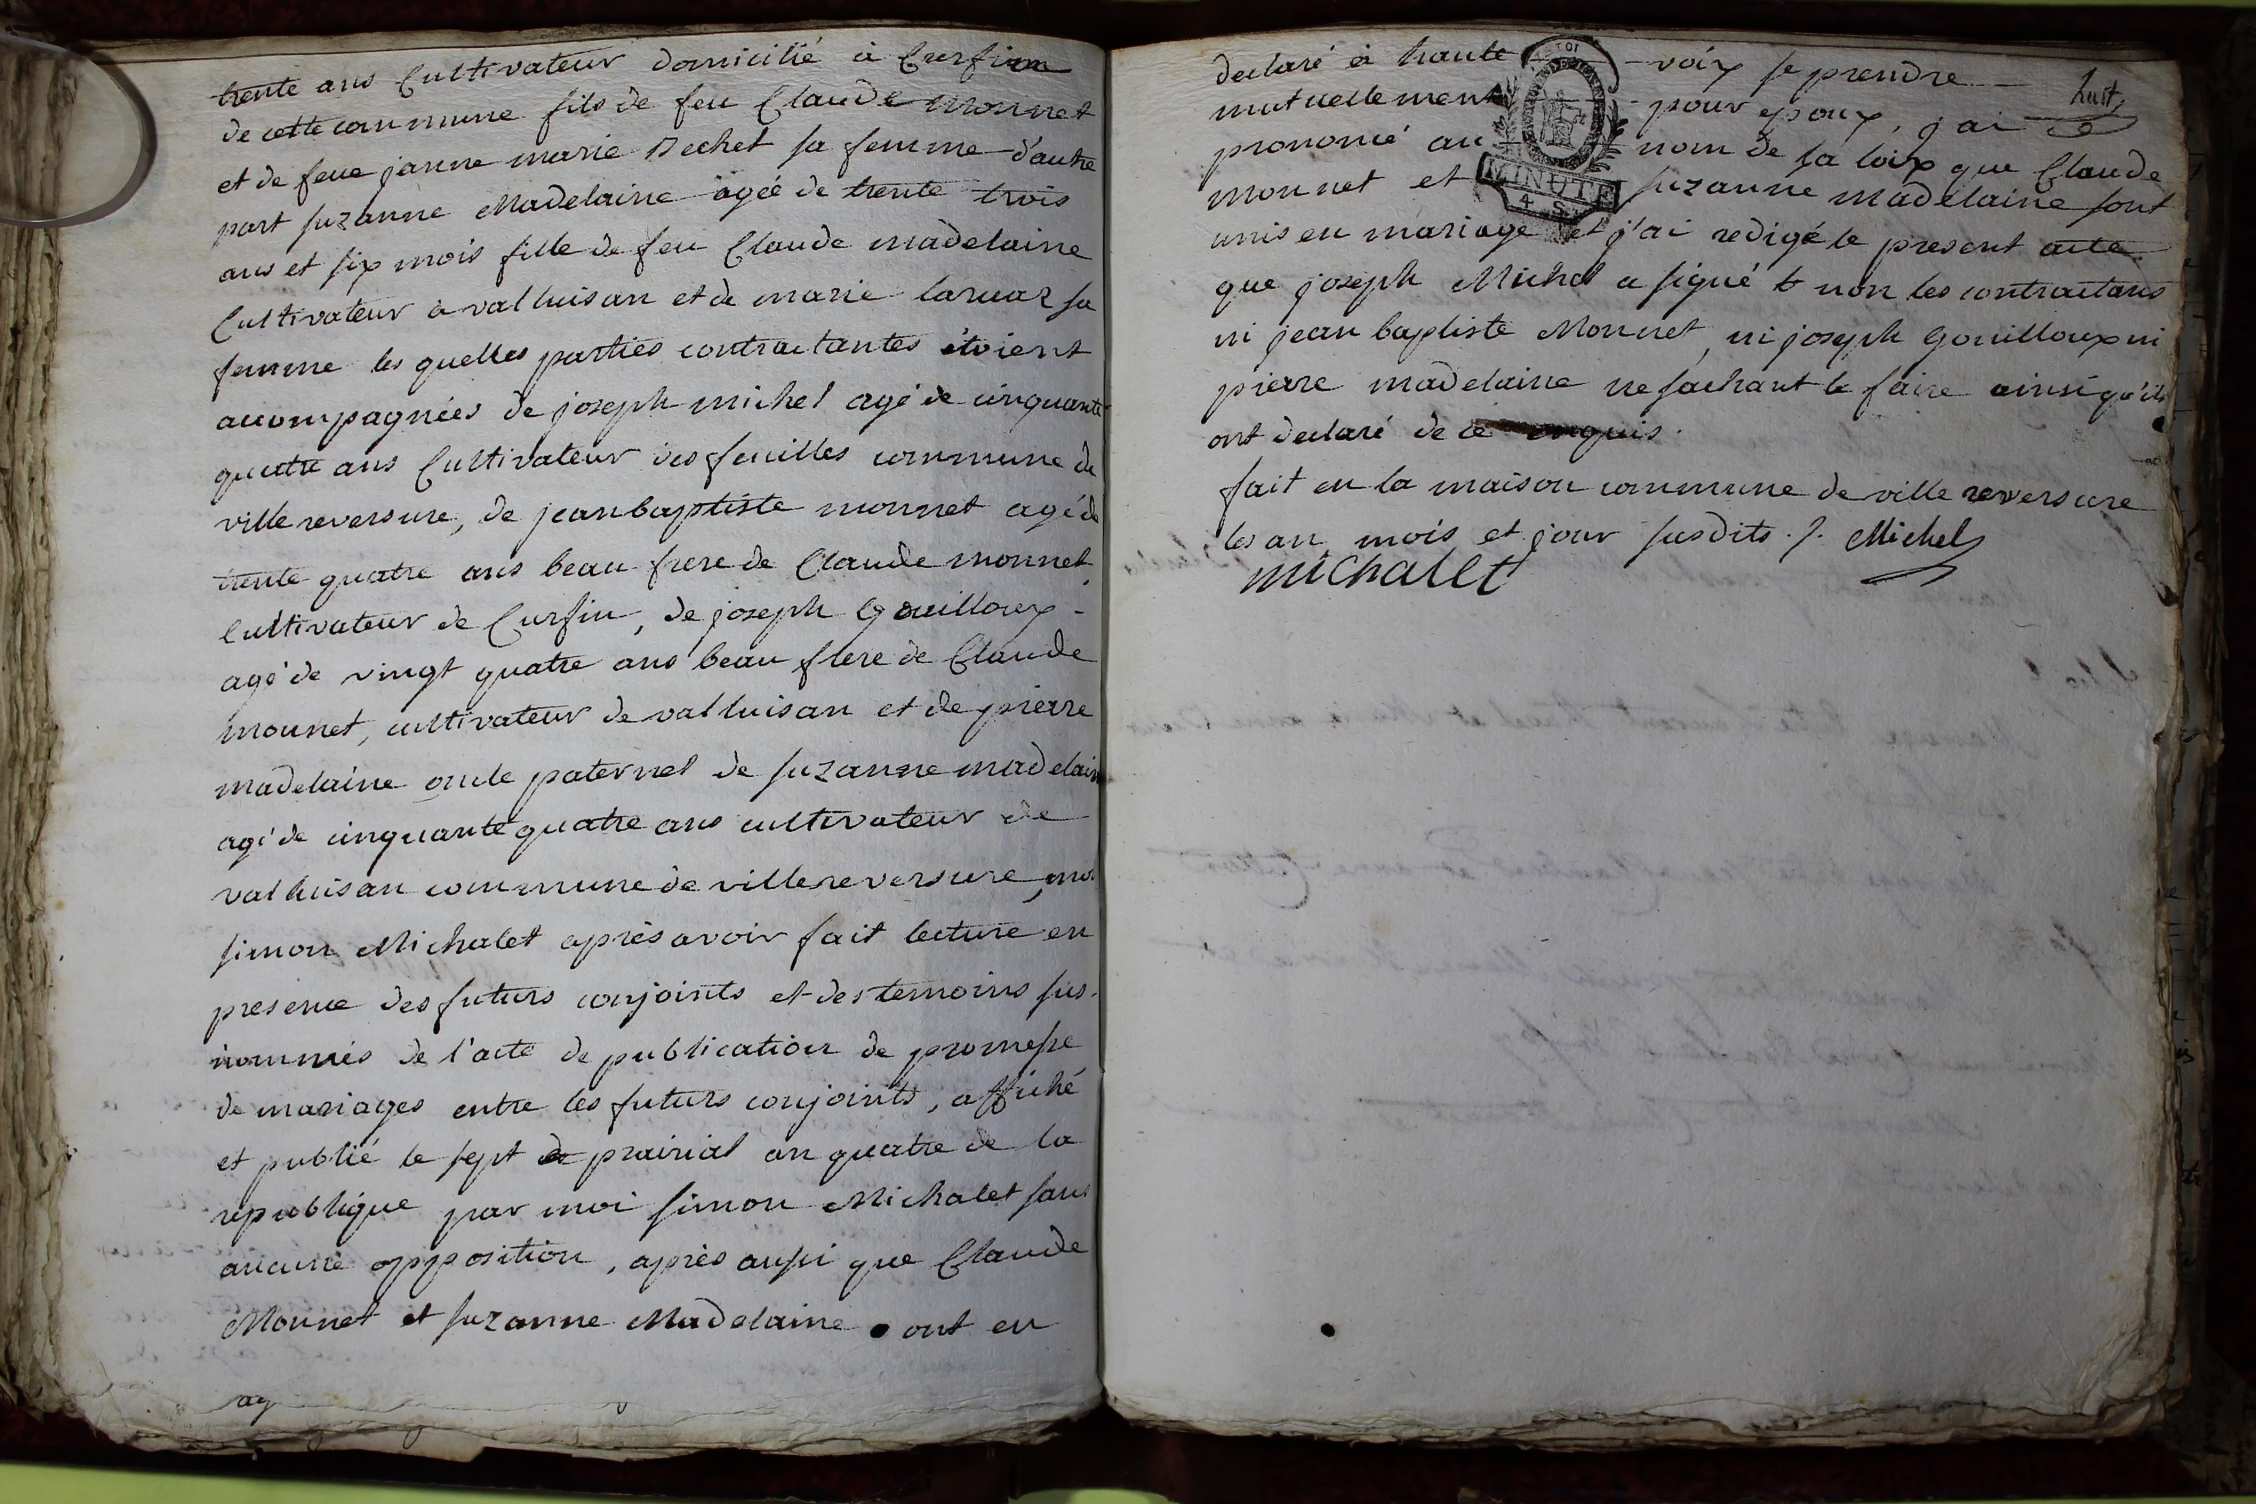 trente ans Cultivateur domicilié à Curfin
de cette commune fils de feu Claude monnet
et de feue janne marie Dechet sa femme d'autre
part suzanne Madelaine agée de trente trois
ans et six mois fille de feu Claude madelaine
Cultivateur à valluisan et de marie laruaz sa
femme les quelles parties contractantes étoient
accompagnées de joseph michel agé de cinquante
quatre ans Cultivateur des feuilles commune de
ville reversure, de jean baptiste monnet agé de
trente quatre ans beau frere de Claude monnet,
Cultivateur de Curfin, de joseph Gouilloux
agé de vingt quatre ans beau frere de Claude
monnet, cultivateur de valluisan et de pierre
madelaine oncle paternel de suzanne madelaine
agé de cinquante quatre ans cultivateur de
valluisan commune de villereversure, moi
simon Michalet après avoir fait lecture en
presence des futurs conjoints et des temoins sus
nommés de l'acte de publication de promesse
de mariages entre les futurs conjoints, affiché
et publié le sept de prairial an quatre de la
republique par moi simon Michalet sans
aucune opposition, après aussi que Claude
Monnet et suzanne Madelaine ont eu
declaré à haute voix se prendre
huit
mutuellement pour epoux, j'ai
prononcé au nom de la loix que Claude
monnet et suzanne madelaine sont
MINUTE
4 S
unis en mariage et j'ai redigé le present acte
que joseph Michel a signé & non les contractans
ni jean baptiste Monnet, ni joseph Gouilloux ni
pierre madelaine ne sachant le faire ainsi qu'ils
ont declaré de ce enquis.
fait en la maison commune de ville reversure
les an, mois et jour susdits. J. Michel
michalet